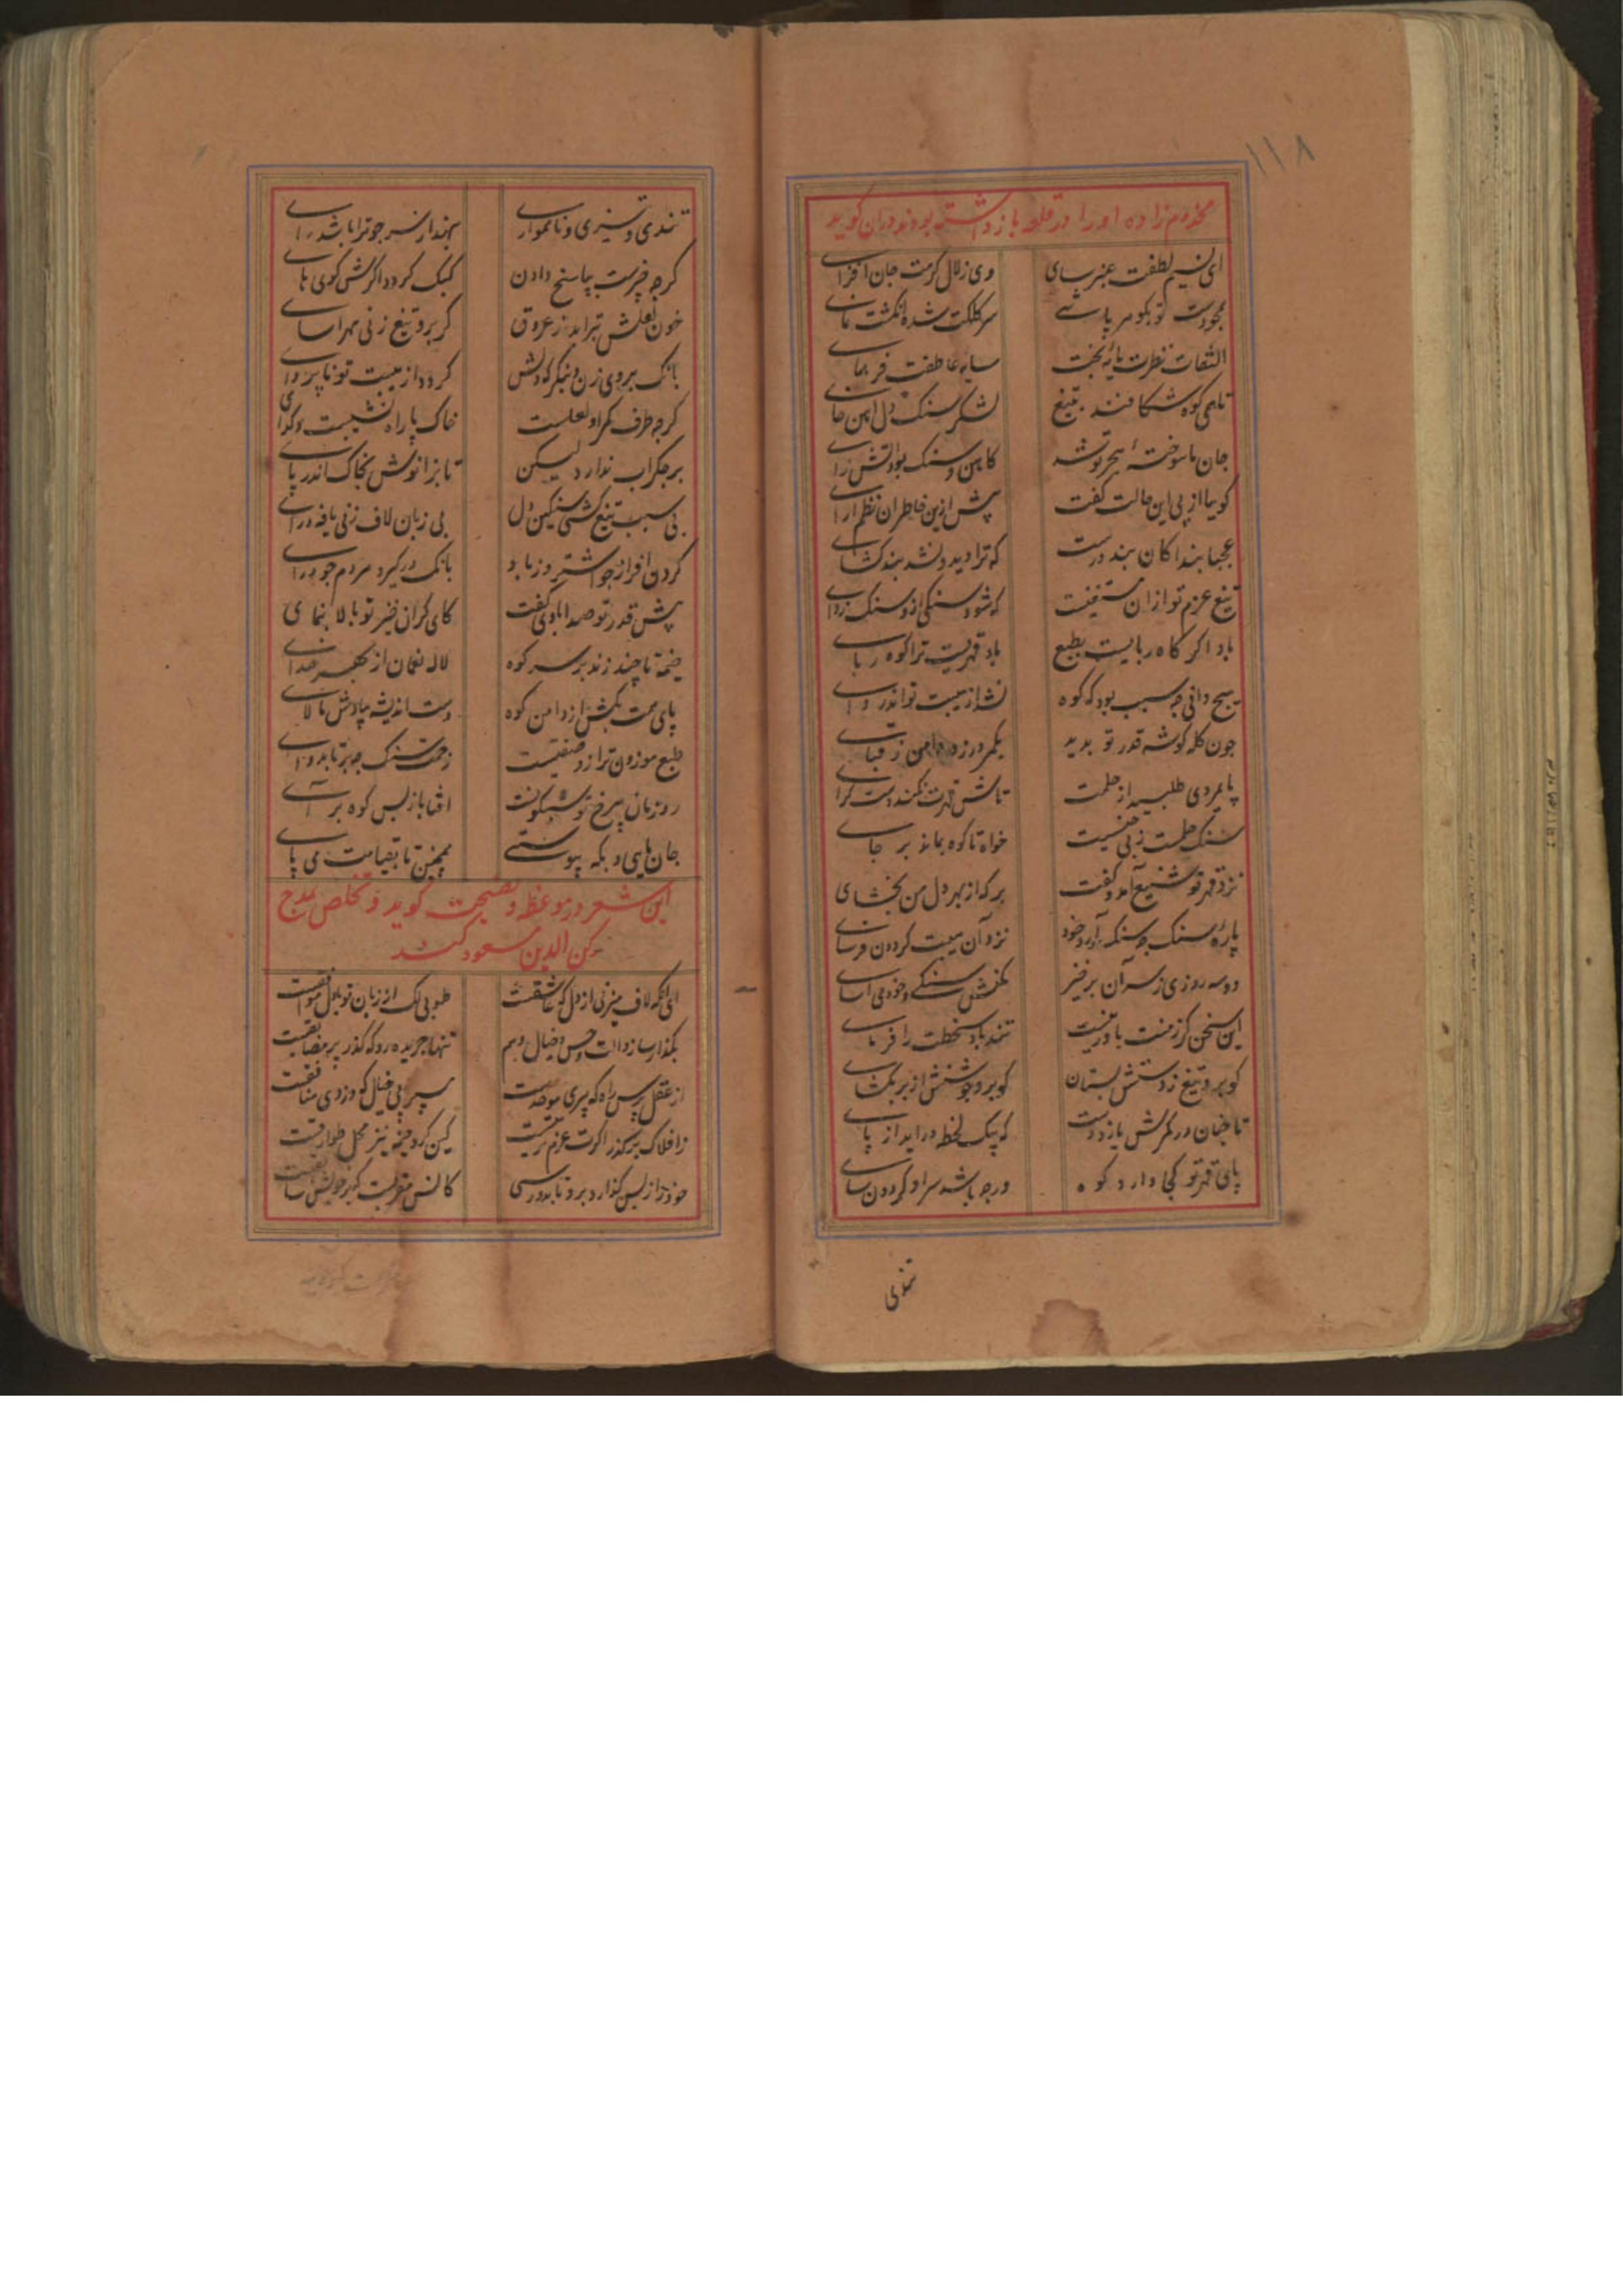 ۱۱۸
مخدوم زاده او را در قلعه باز داشته بودند در ان کوید
ای نسیم لطفت عنبر سای وی زلال کرمت جان افزای
بجودت تو بکوهر پاشی سر کلکت شده انکشت نمای
التفات نظرت پایه بخت سایه عاطفت فر همای
تاهی کوه شکافند بتیغ لشکر سنک دل اهن خای
جان ما سوخته هجر تو شد کاهن و سنک بود آتش زای
کوییا از پی این حالت کفت پیش ازین خاطر ان نظم ارای
عجبا بندا کان بند درست که ترا دید و نشد بند کشای
تیغ عزم تو ازان مستغنیست که شود سنکی ازو سنک زدای
باد اکر کاه ربایست بطبع باد قهریست ترا کوه ربای
هیچ دانی چه سبب بود که کوه نشد از هیبت تو اندر وای
چون کله کوشه قدر تو بدید بکمر در زد دامن ز قبای
پایمردی طلبید از حلمت تاش قهرت نکند دست کرای
سنک حلمت ز پی جنسیت خواه تا کوه بماند بر جای
نزد قهر تو شفیع آمد و کفت بر که از بهر دل من بخشای
پاره سنک چه سنک آرد خود نزد آن هیبت کردون فرسای
دو سه روزی ز سر آن بر خیز بکنش سنکی و خود می اسای
این سخن کر ز منت باور نیست تند باد سخطت را فرمای
کو برو تیغ ز دستش بستان کو برو جوشنش از بر بکشای
تا چنان در کمرش یازد دست که بیک لحظه دراید از پای
پای قهر تو کجا دارد کوه ورچه باشد سر او کردون سای
تندی
تندی و تیزی و ناهمواری بهند از سر چو ترا باشد رای
کرچه خرست بپاسخ دادن کبک کردد اکرش کوی های
خون لعلش بتراید ز عروق کر برو تیغ زنی مهر اسای
بانک بروی زن و بنکر که دلش کردد از هیبت تو ناپروای
کرچه طرف کمر او لعلست خاک پا راه نشینست و کدای
بر جکر اب ندارد لیکن تا بزانوش بخاک اندر پای
بی سبب تیغ کشی سنکین دل بی زبان لاف زنی یافه درای
کردن افراز چو اشتر وز باد بانک در کیرد هر دم چو درای
پیش قدر تو صدا باوی کفت کای کران خیز تو بالا بنمای
خیمه تا چند زند بر سر کوه لاله نعمان از بهر خدای
پای همت بکش از دامن کوه دست اندیشه بپاداش مالای
طبع موزون ترازو صفتیست زحمت سنک چه برتابد وای
روز ما ن بی رخ تو شبکونست افتابا ز پس کوه بر آی
جان مایی و بکه پیوستی همچنین تا بقیامت می پای
این شعر در موعظه و نصیحت کوید و تخلص بمدح
رکن الدین مسعود کند
ای آنکه لاف میزنی از دل که عاشقست طوبی لک ار زبان تو با دل موافقست
بکذار ساز و الت و حس و خیال و وهم تنها جریده رو که کذر بر مضایقست
از عقل پرس راه که پیری موحدست مسپر پی خیال که دزدی منافقست
ز افلاک بر کذر اکرت عزم رتبتیست کین کرد خیمه نیز محل طوارقست
خود را ز پس کذار و برو تا بدو رسی کانس مقربست کز خویش سابقست